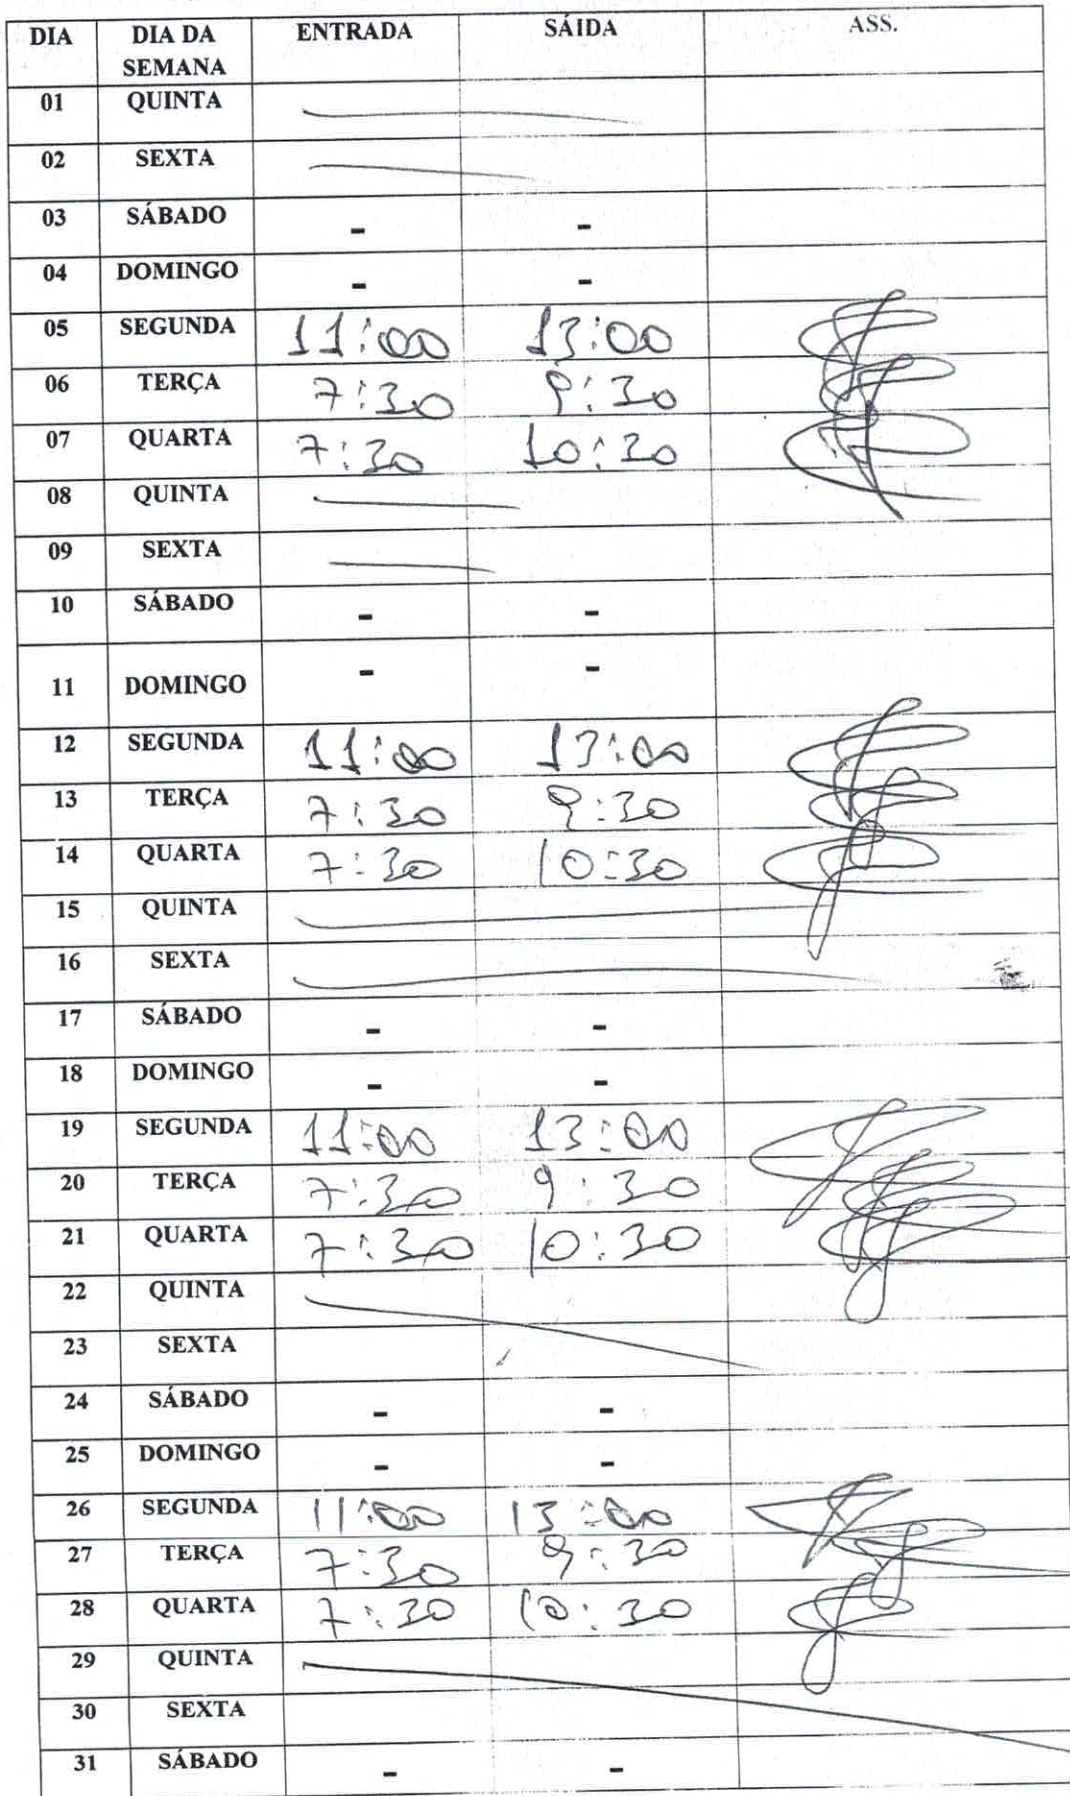 DIA DIA DA SEMANA ENTRADA SÁIDA ASS.
01 QUINTA
02 SEXTA
03 SÁBADO - -
04 DOMINGO - -
05 SEGUNDA 11:00 13:00
06 TERÇA 7:30 9:30
07 QUARTA 7:30 10:30
08 QUINTA
09 SEXTA
10 SÁBADO - -
11 DOMINGO - -
12 SEGUNDA 11:00 13:00
13 TERÇA 7:30 9:30
14 QUARTA 7:30 10:30
15 QUINTA
16 SEXTA
17 SÁBADO - -
18 DOMINGO - -
19 SEGUNDA 11:00 13:00
20 TERÇA 7:30 9:30
21 QUARTA 7:30 10:30
22 QUINTA
23 SEXTA
24 SÁBADO - -
25 DOMINGO - -
26 SEGUNDA 11:00 13:00
27 TERÇA 7:30 9:30
28 QUARTA 7:30 10:30
29 QUINTA
30 SEXTA
31 SÁBADO - -